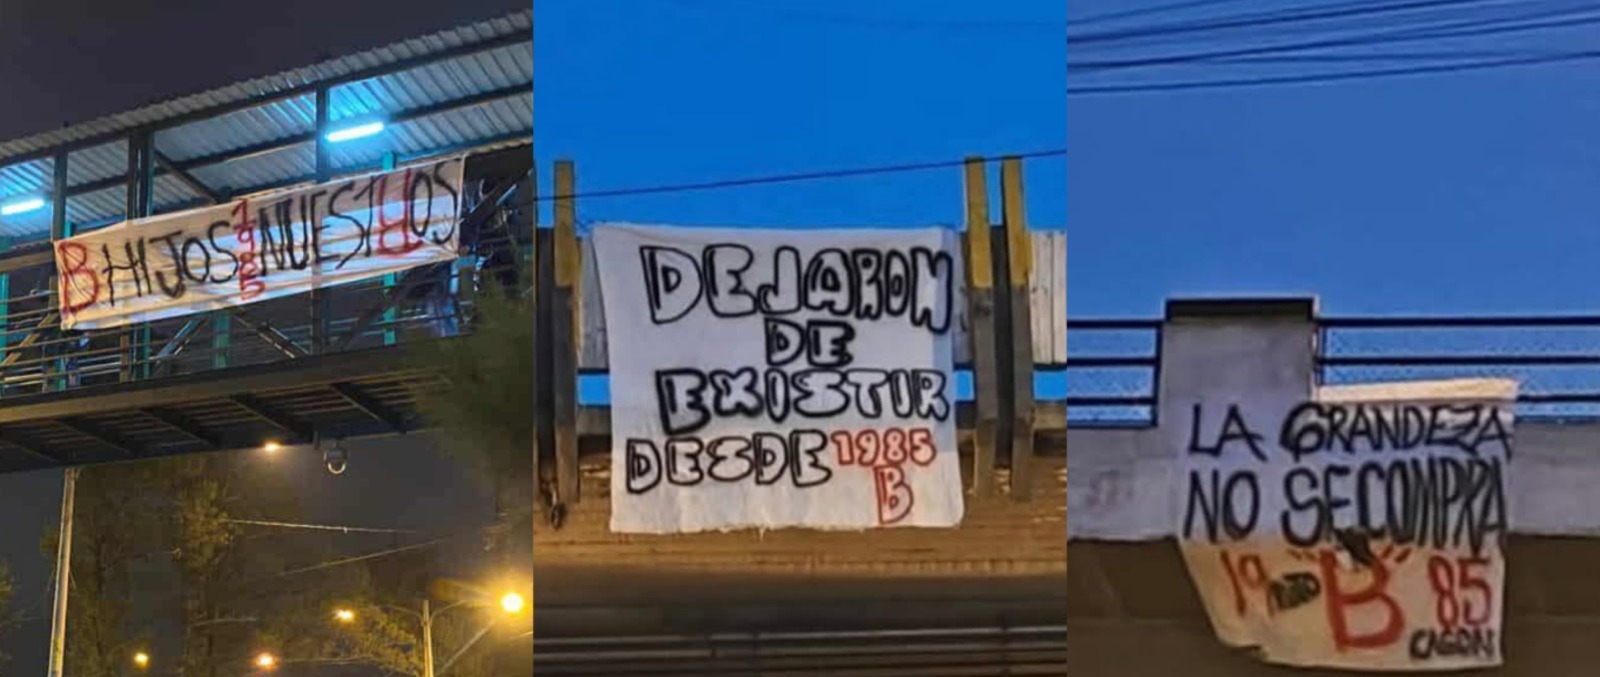 B HIJOS 1985 NUESTROS
DEJARON
DE
EXISTIR
DESDE 1985
B
LA GRANDEZA
NO SE COMPRA
19 "B" 85